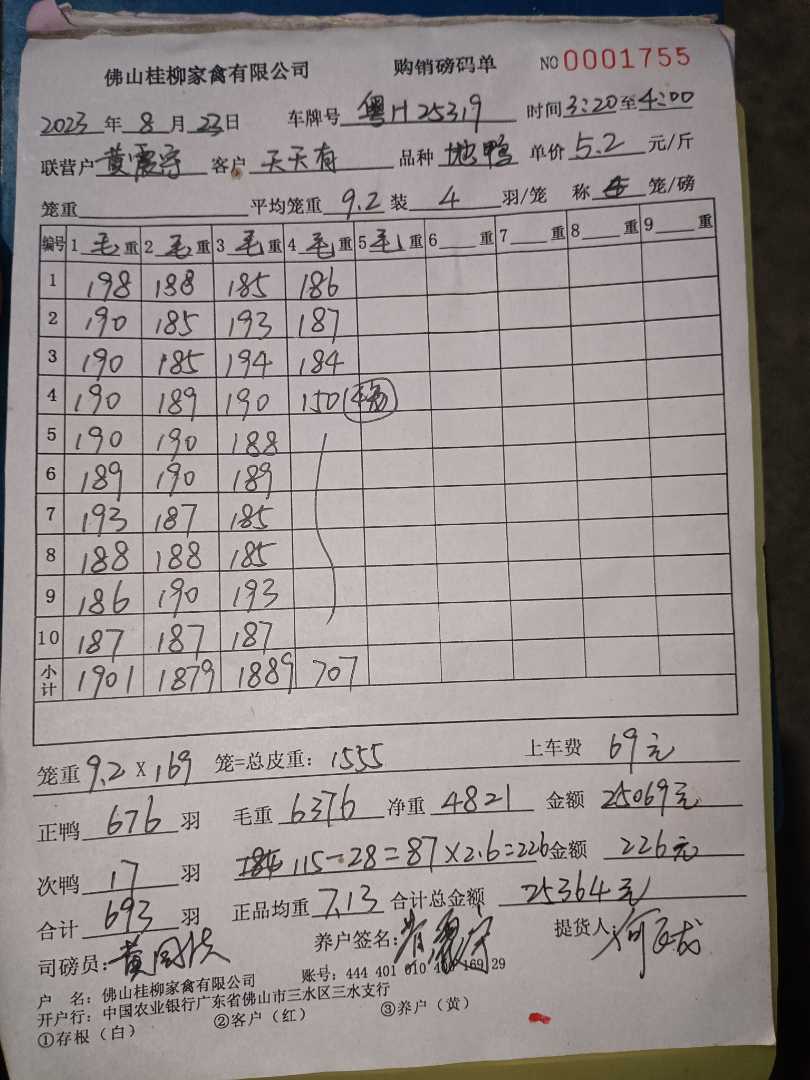 佛山桂柳家禽有限公司 购销磅码单 NO 0001755
2023年8月23日 车牌号 粤H25319 时间3:20至4:00
联营户 黄震宇 客户 天天有 品种 地鸭 单价 5.2 元/斤
笼重 平均笼重 9.2 装 4 羽/笼 称 5 笼/磅
编号 1毛重 2毛重 3毛重 4毛重 5毛重 6重 7重 8重 9重
1 198 188 185 186
2 190 185 193 187
3 190 185 194 184
4 190 189 190 150
5 190 190 188
6 189 190 189
7 193 187 185
8 188 188 185
9 186 190 193
10 187 187 187
小计 1901 1879 1889 707
笼重 9.2 X 169 笼=总皮重: 1555 上车费 69元
正鸭 676 羽 毛重 6376 净重 4821 金额 25069元
次鸭 17 羽 115-28=87×2.6=226 金额 226元
合计 693 羽 正品均重 7.13 合计总金额 25364元
司磅员: 养户签名: 提货人:
户 名: 佛山桂柳家禽有限公司 账号: 444 401 010 400 169 29
开户行: 中国农业银行广东省佛山市三水区三水支行
①存根(白) ②客户(红) ③养户(黄)